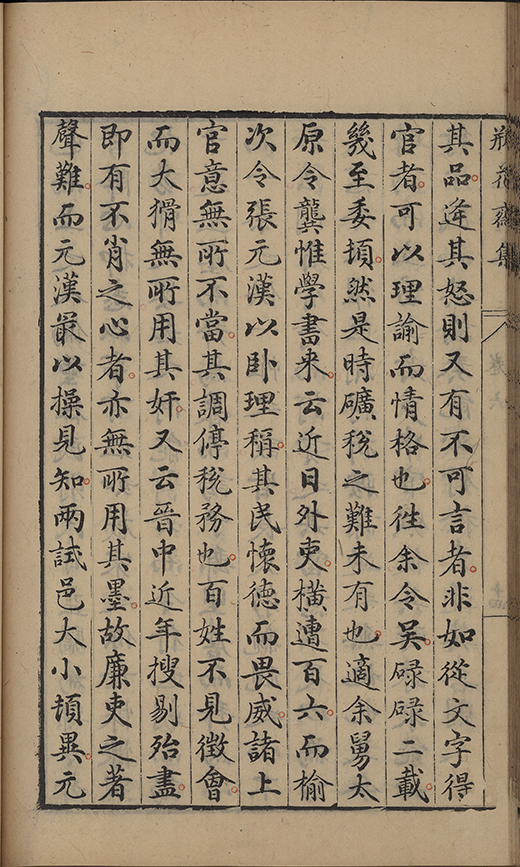 瓶花齋集
卷六
十四
其品逢其怒則又有不可言者非如從文字得
官者可以理諭而情格也往余令吳碌碌二載
幾至委頓然是時礦稅之難未有也適余舅太
原令龔惟學書來云近日外吏橫遭百六而榆
次令張元漢以卧理稱其民懷德而畏威諸上
官意無所不當其調停稅務也百姓不見徵會
而大猾無所用其奸又云晉中近年搜剔殆盡
即有不肖之心者亦無所用其墨故廉吏之著
聲難而元漢最以操見知兩試邑大小頓異元